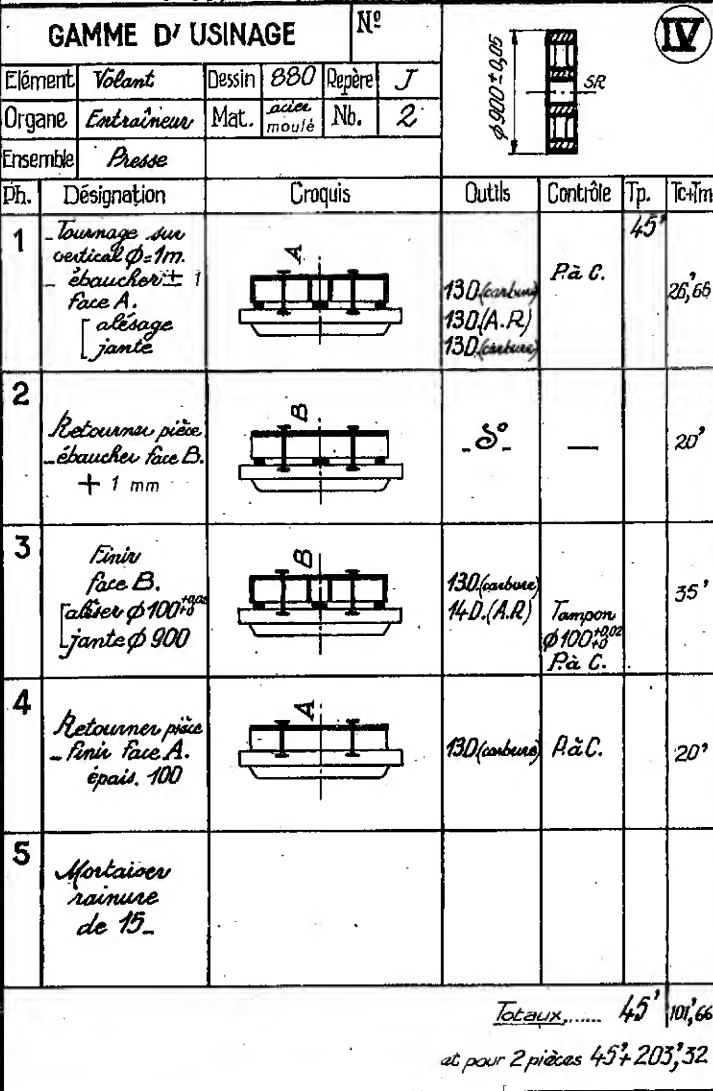 GAMME D' USINAGE
Nº
IV
Elément Volant Dessin 880 Repère J
Organe Entraîneur Mat. acier moulé Nb. 2
Ensemble Presse
ϕ900±0,05
SR
Ph. Désignation Croquis Outils Contrôle Tp. Tc+Tm
1
- Tournage sur
vertical ϕ=1m.
- ébaucher ± 1
face A.
[ alésage
jante
A
13D.(carbure)
13D.(A.R)
13D.(carbure)
P.à C.
45'
26',66
2
Retourner pièce
- ébaucher face B.
+ 1 mm
B
- d° -
—
20'
3
Finir
face B.
[aléser ϕ100 +0,02 +0
jante ϕ 900
B
13D.(carbure)
14D.(A.R)
Tampon
ϕ100 +0,02 +0
P.à C.
35'
4
Retourner pièce
- finir face A.
épais. 100
A
13D.(carbure)
P.à C.
20'
5
Mortaiser
rainure
de 15_
Totaux,...... 45' 101',66
et pour 2 pièces 45'+203',32